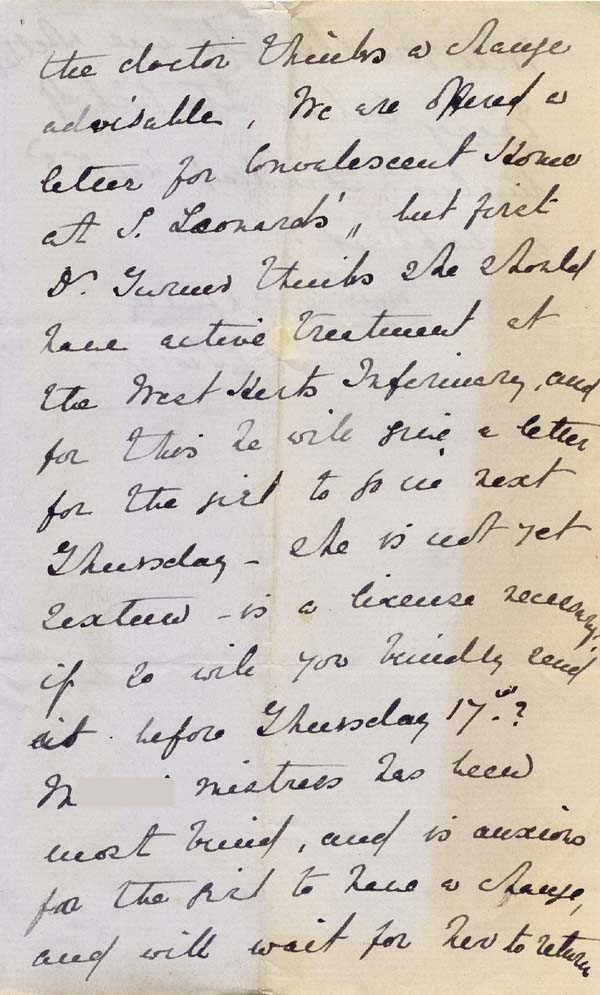 the doctor thinks a change
advisable, We are offered a
letter for Convalescent Home
at S. Leonards', but first
Dr. Turner thinks she should
have active treatment at
the West Herts Infirmary, and
for this he will give a letter
for the girl to go in next
Thursday - she is not yet
sixteen - is a license necessary,
if so will you kindly send
it before Thursday 17th.?
M mistress has been
most kind, and is anxious
for the girl to have a change,
and will wait for her to return